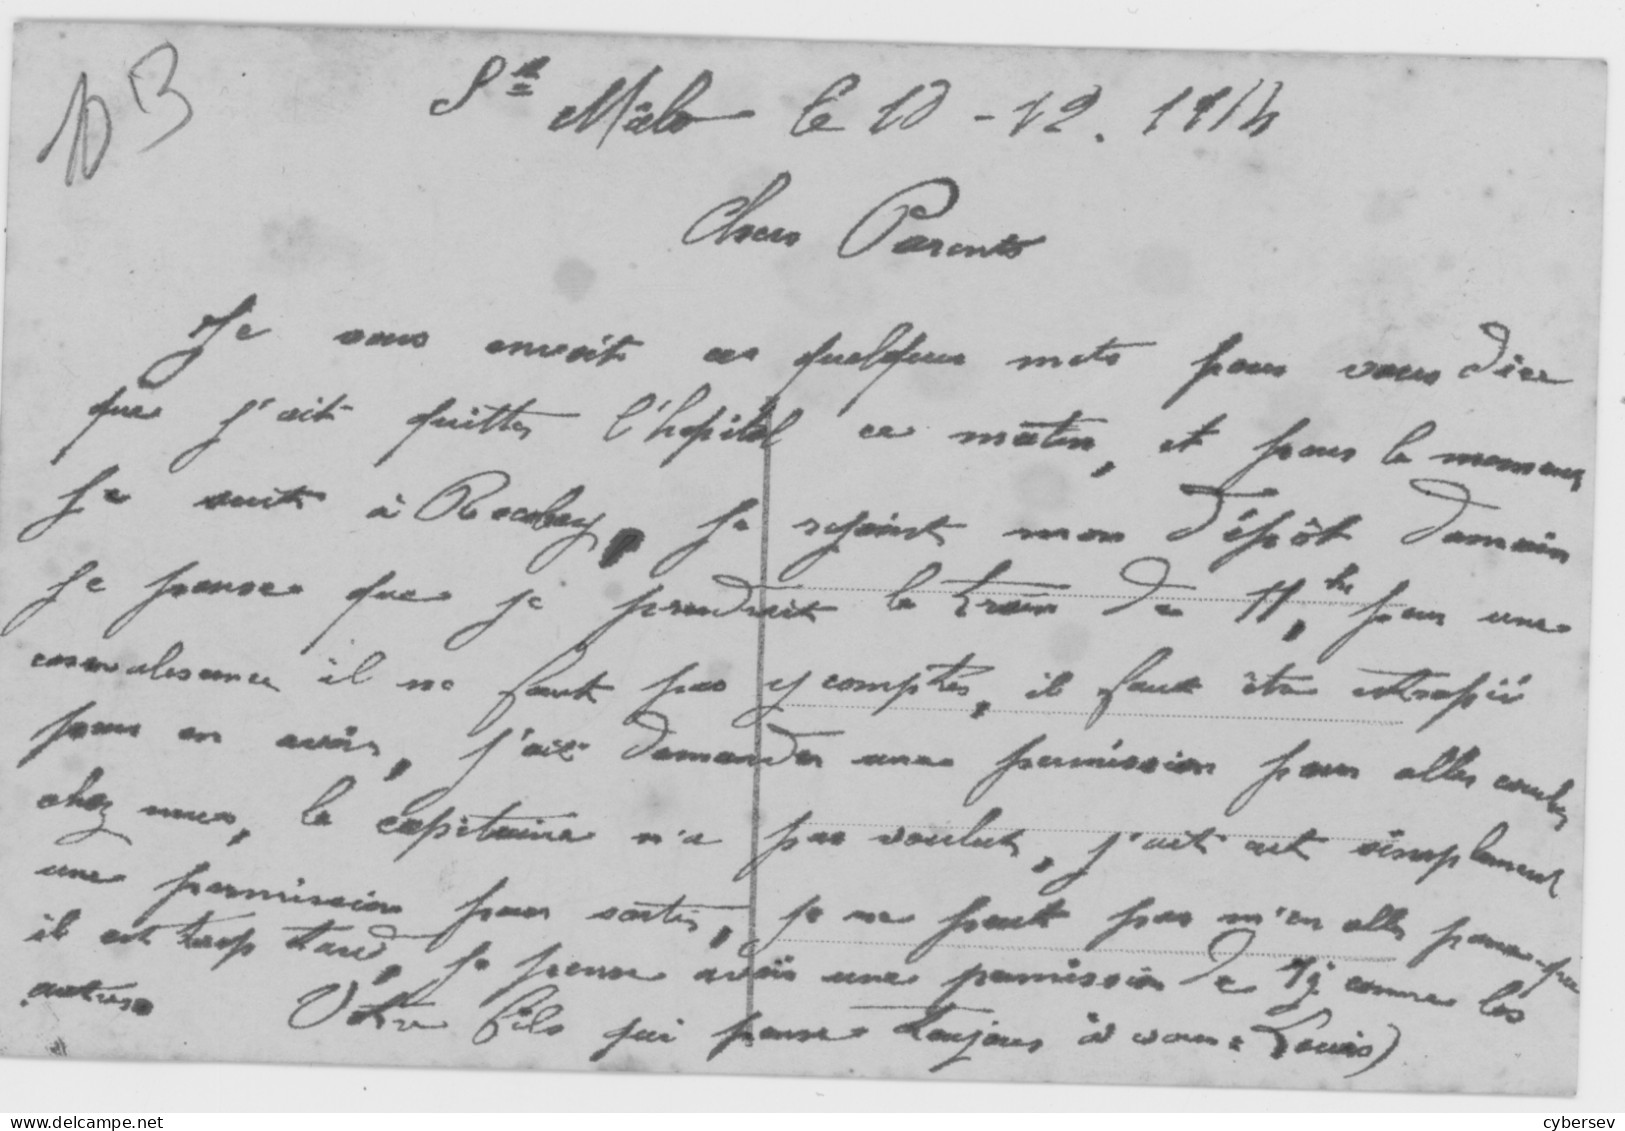 St Mâlo le 10 - 12. 1914
Chers Parents
Je vous envoit ces quelques mots pour vous dire
que j'ait quitter l'hopital ce matin, et pour le moment
je suit à Rocabey, je rejoint mon dépôt demain
je pense que je prendrait le train de 11hr, pour une
convalesance il ne faut pas y compter, il faut être estropié
pour en avoir, j'ait demander une permission pour aller coucher
chez nous, le capitaine n'a pas voulut, j'ait eut simplement
une permission pour sortir, je ne peut pas m'en aller parce que
il est trop tard, je pense avoir une permission de 7j comme les
autres Votre fils qui pense toujours à vous Louis)
cybersev
www.delcampe.net